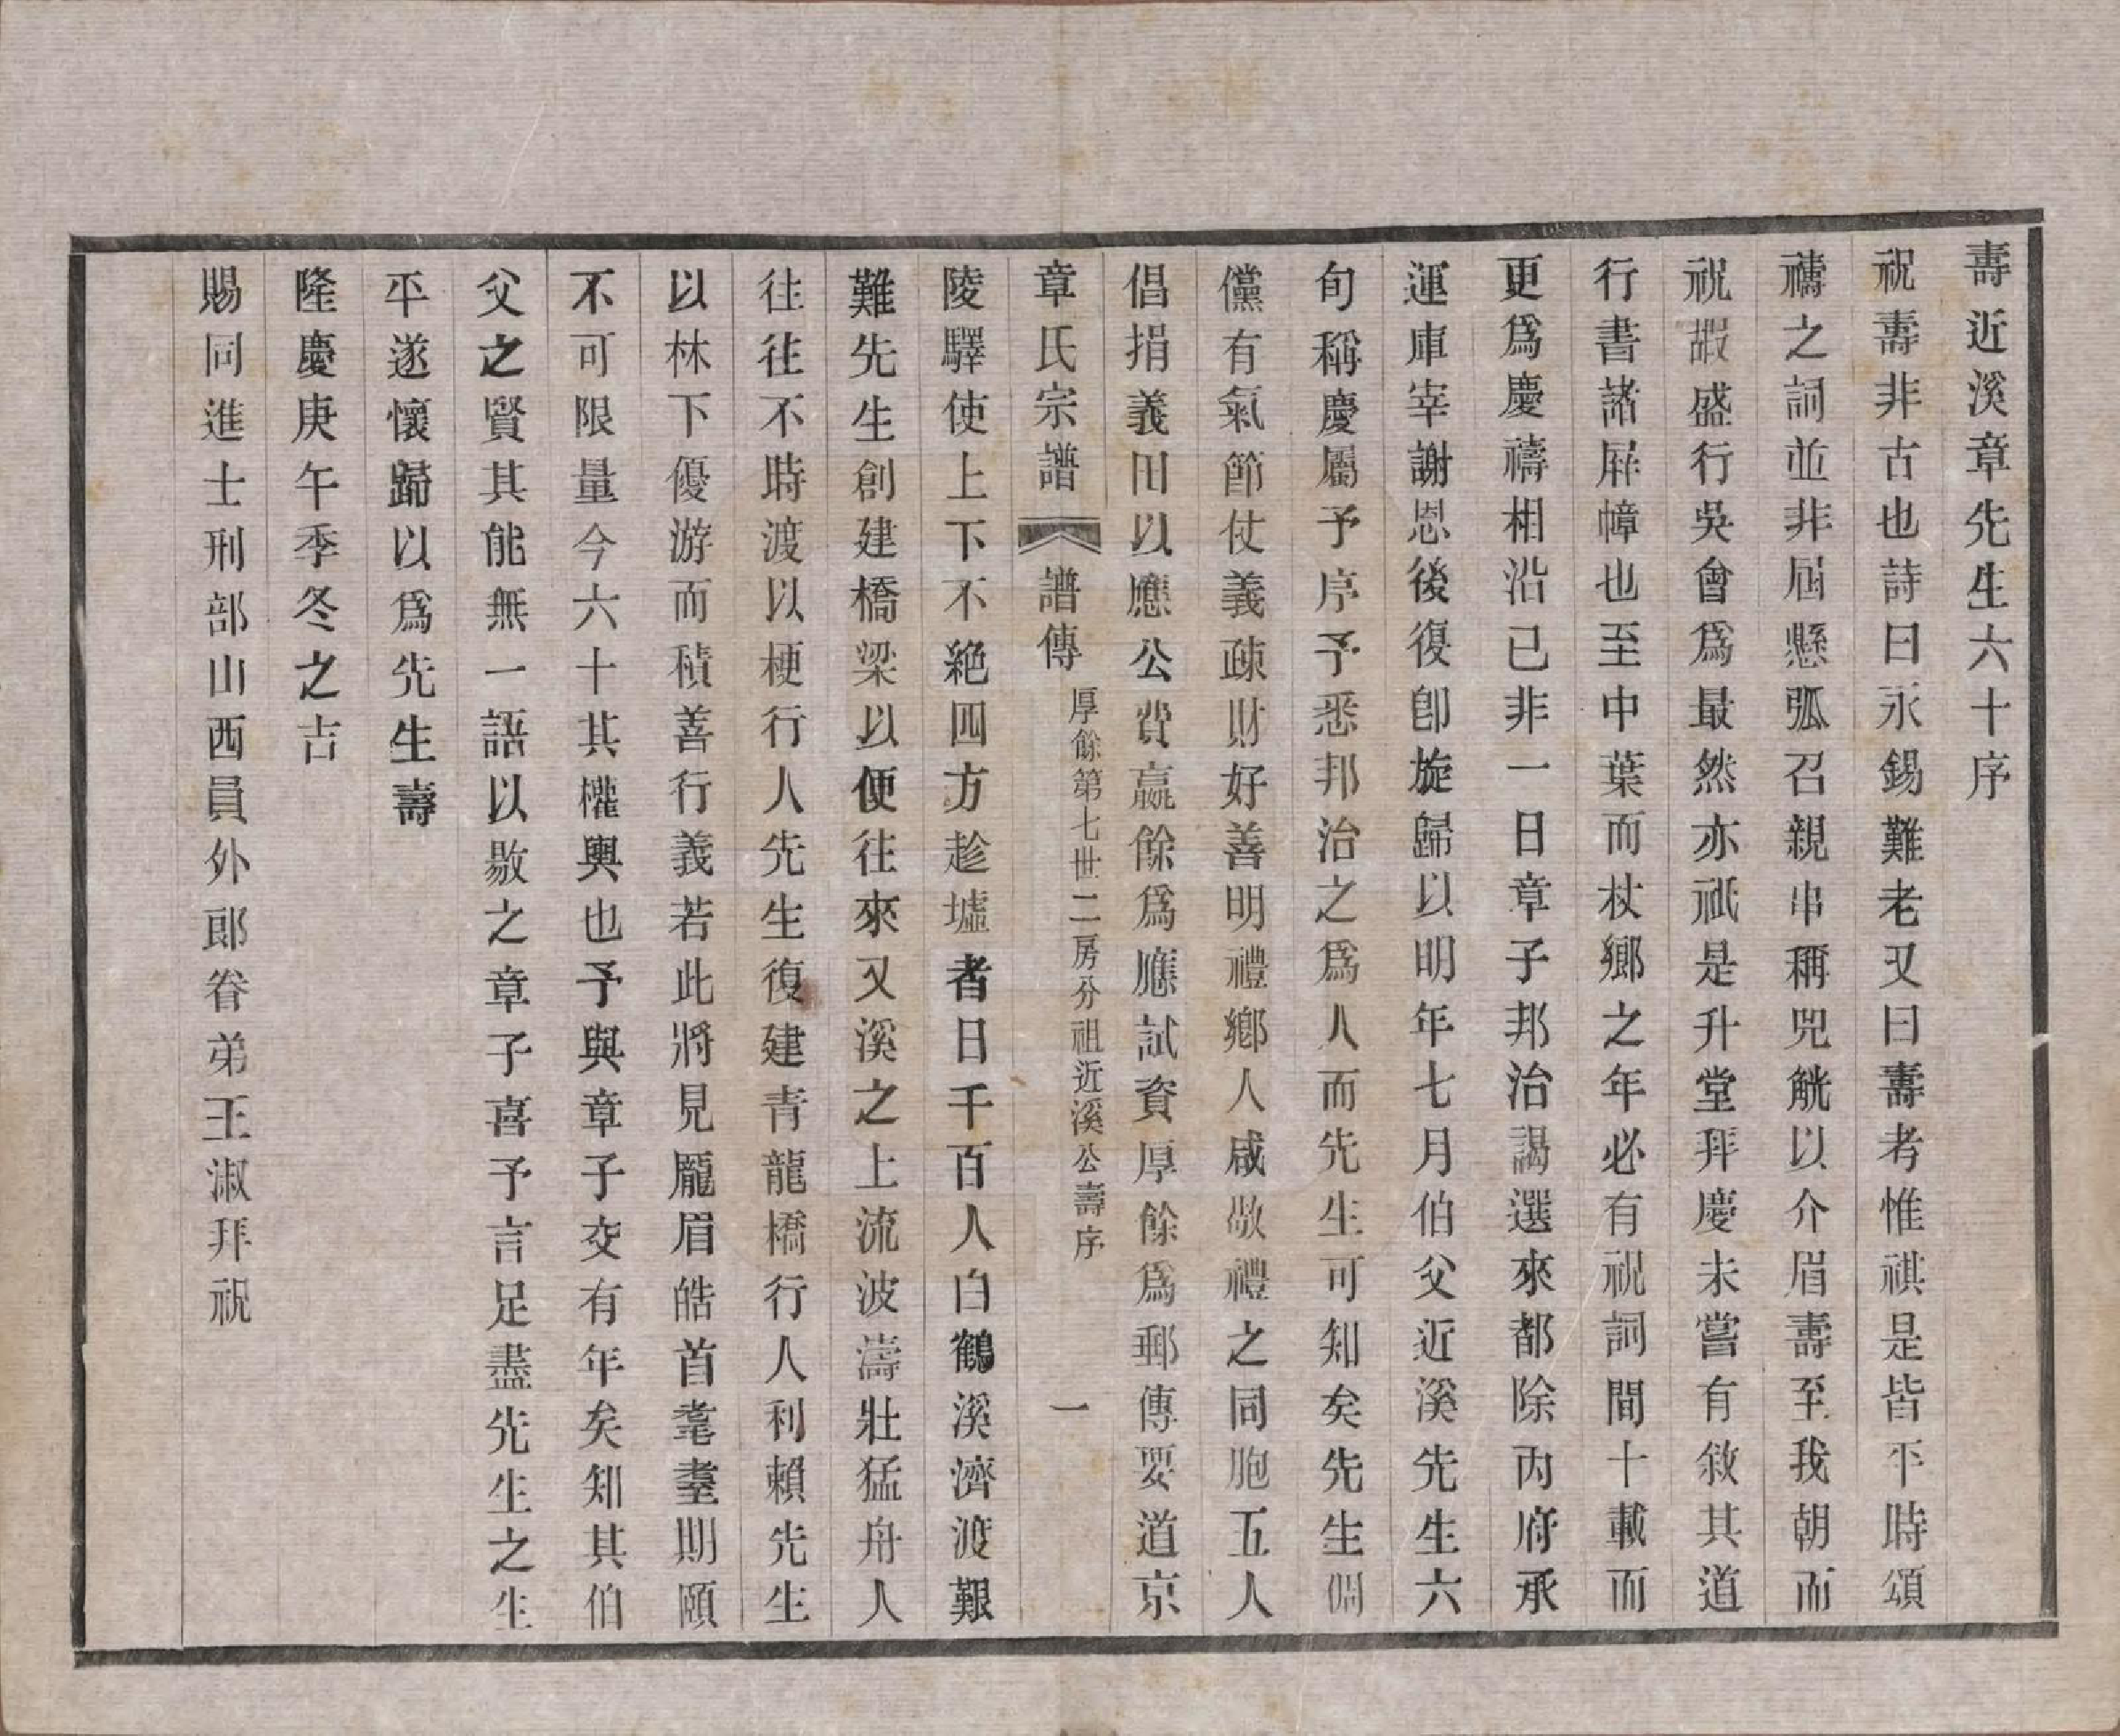 壽近溪章先生六十序
祝壽非古也詩曰永錫難老又曰壽考惟祺是皆平時頌
禱之詞並非屆懸弧召親串稱兕觥以介眉壽至我朝而
祝嘏盛行吳會爲最然亦祇是升堂拜慶未嘗有敘其道
行書諸屏幛也至中葉而杖鄉之年必有祝詞間十載而
更爲慶禱相沿已非一日章子邦治謁選來都除內府承
運庫宰謝恩後復卽旋歸以明年七月伯父近溪先生六
旬稱慶屬予序予悉邦治之爲人而先生可知矣先生倜
儻有氣節仗義疎財好善明禮鄉人咸敬禮之同胞五人
倡捐義田以應公費贏餘爲應試資厚餘爲郵傳要道京
章氏宗譜 譜傳 厚餘第七世二房分祖近溪公壽序 一
陵驛使上下不絕四方趁墟者日千百人白鶴溪濟渡艱
難先生創建橋梁以便往來又溪之上流波濤壯猛舟人
往往不時渡以梗行人先生復建青龍橋行人利賴先生
以林下優游而積善行義若此將見龐眉皓首耄耋期頤
不可限量今六十其權輿也予與章子交有年矣知其伯
父之賢其能無一語以敭之章子喜予言足盡先生之生
平遂懷歸以爲先生壽
隆慶庚午季冬之吉
賜同進士刑部山西員外郎眷弟王淑拜祝